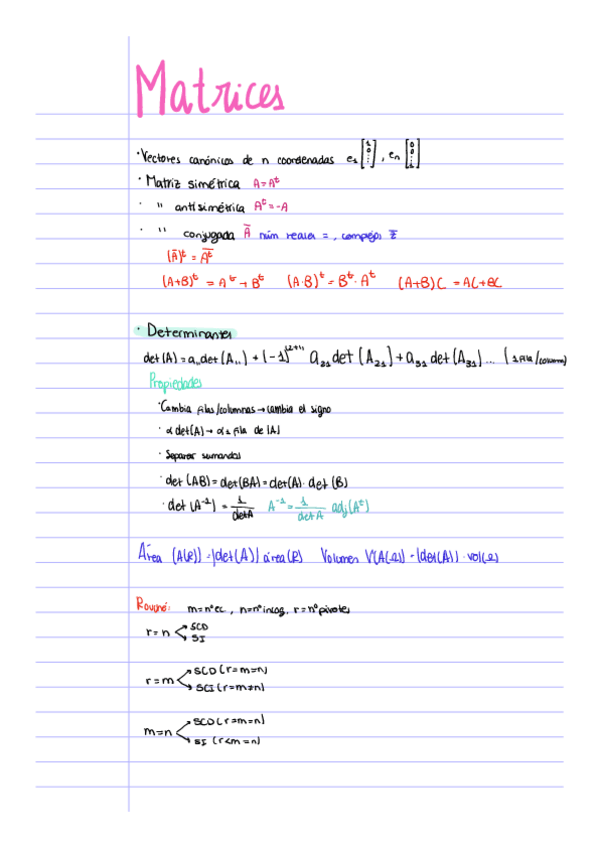 Matrices
· Vectores canónicos de n coordenadas e₁ [1 0 ⋮], eₙ [0 0 ⋮ 1]
· Matriz simétrica A=Aᵗ
· " antisimétrica Aᵗ=-A
· " conjugada Ā núm reales = , complejos z̄
(Ā)ᵗ = A̅ᵗ
(A+B)ᵗ = Aᵗ + Bᵗ (A·B)ᵗ = Bᵗ·Aᵗ (A+B)C = AC+BC
· Determinantes
det(A) = a₁₁det(A₁₁) + (-1)²⁺¹ a₂₁ det (A₂₁) + a₃₁ det(A₃₁)... (1 fila/column)
Propiedades
· Cambia filas/columnas → cambia el signo
· α det(A) → α 1 fila de |A|
· Separar sumandos
· det(AB) = det(BA) = det(A)· det(B)
· det(A⁻¹) = 1/detA A⁻¹ = 1/detA adj(Aᵗ)
Área (A(R)) = |det(A)| área(R) Volumen V(A(Ω)) = |det(A)| · vol(Ω)
Rouché: m=nºec, n=nºincog, r=nºpivotes
r=n SCD
SI
r=m SCD (r=m=n)
SCI (r=m≠n)
m=n SCD (r=m=n)
SI (r<m=n)